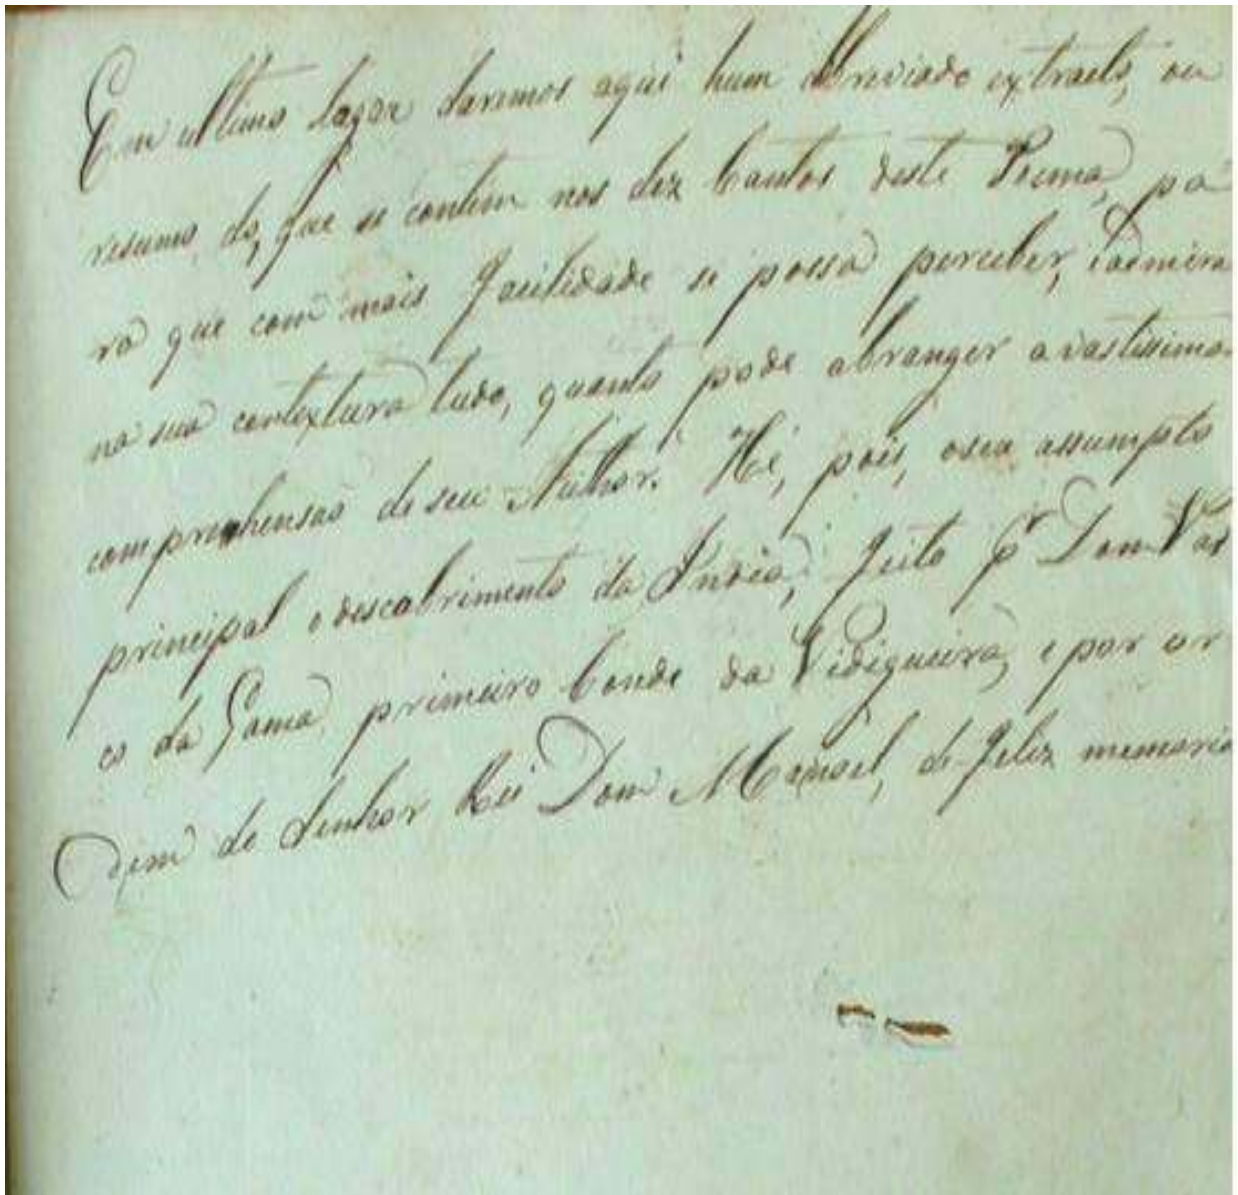 Em ultimo lugar daremos aqui hum abreviado extracto, ou
resumo, do, que se contém nos dez Cantos deste Poema, pa
ra que com mais facilidade se possa perceber, e admirar
na sua contextura tudo, quanto pode abranger a vastissima
comprehensaõ de seu Author. Hé, pois, o seu assumpto
principal o descobrimento da India, feito pr Dom Vas
co da Gama, primeiro Conde da Vidigueira, e por or
dem do Senhor Rei Dom Manoel, de feliz memoria